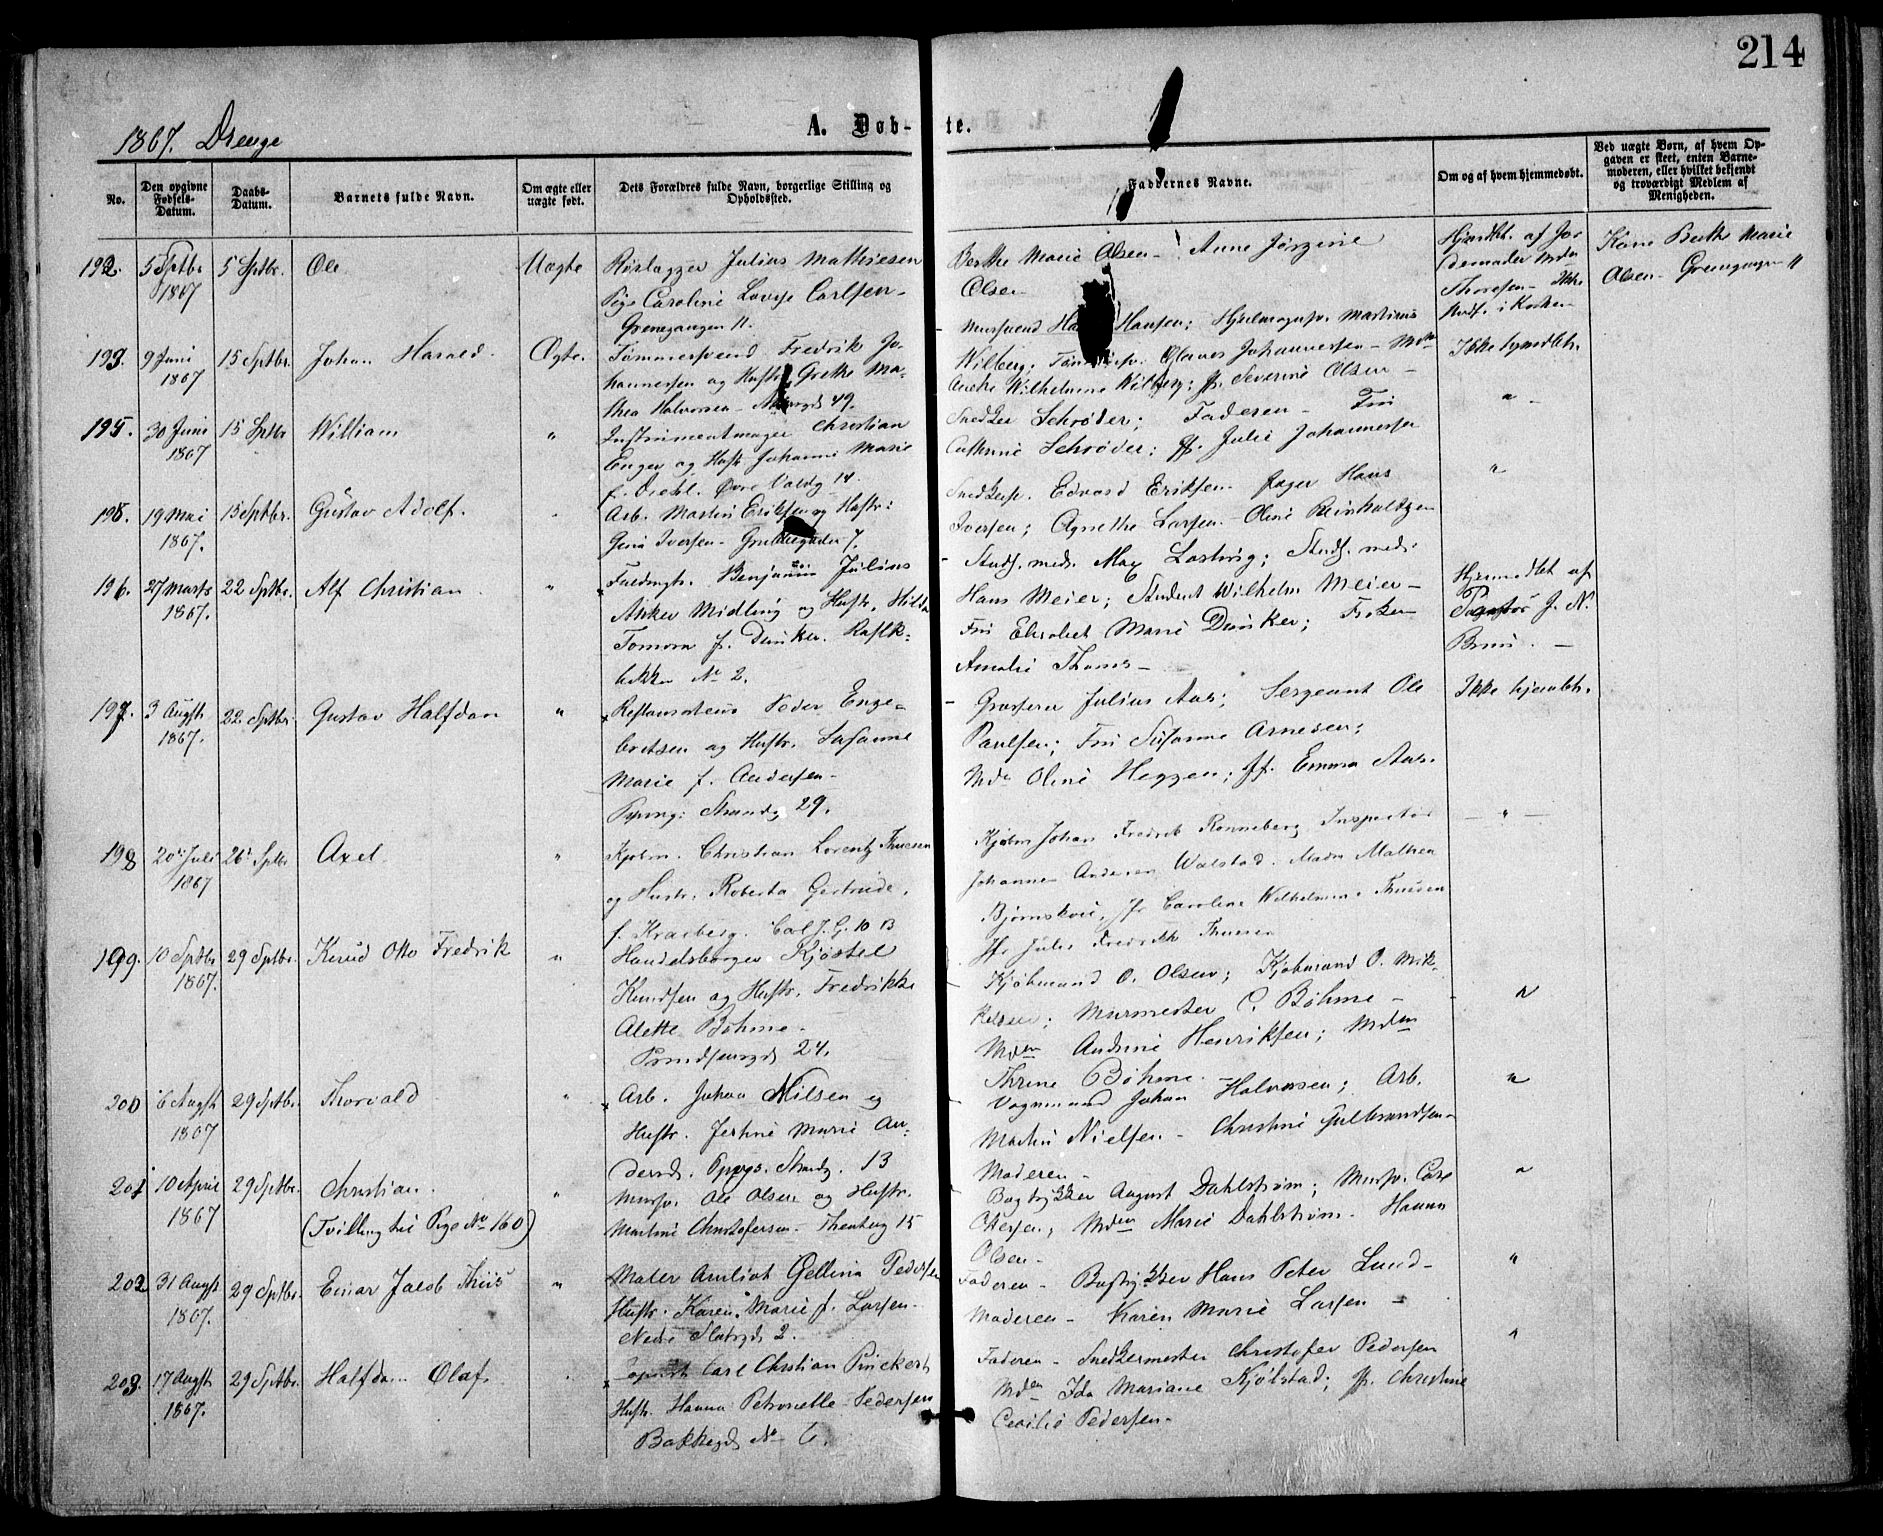 214
1867. Drenge
A. Døb-te.
No.
Den opgivne Fødsels-Datum.
Daabs-Datum.
Barnets fulde Navn.
Om ægte eller uægte født.
Dets Forældres fulde Navn, borgerlige Stilling og Opholdssted.
Faddernes Navne.
Om og af hvem hjemmedøbt.
Ved uægte Børn, af hvem Opgaven er skeet, enten Barnemoderen, eller hvilket bekjendt og troværdigt Medlem af Menigheden.
192. 5 Sptbr 1867 5 Sptbr. Ole Uægte
Rørlægger Julius Mathiesen
Pige Caroline Lovise Carlsen-
Grønnegangen 11.
Berthe Marie Olsen - Anne Jørgine
Olsen
Hjemdbt. af Jor
demoder Mdm
Thoresen - Ikke
i Kirken
Kone Berthe Marie
Olsen-
193. 9 Juni 1867 15 Sptbr. Johan Harald. Ægte.
Tømmersvend Fredrik Jo-
hannessen og Hustr. Grethe Ma-
thea Halvorsen - 49.
Mursvend Hansen; Martinus
Wilberg; Johannessen -
Wilhelmine Wilberg; jfr. Severine Olsen -
Ikke hjmdbt.
194. 30 Juni 1867 15 Sptbr William "
Instrumentmager Christian
Enger og Hustr. Johanne Marie
f. Diehl. Øvre Voldg 14.
Snedker Schrøder; Faderen - Fru
Cathrine Schrøder; jfr. Julie Johannessen
" -
195. 19 Mai 1867. 15 Sptbr. Gustav Adolf.
Arb. Martin Eriksen og Hustr:
Gina Iversen - 7.
Snedkersv. Edvard Eriksen - Jager Hans
Iversen; Agnethe Larsen - Oline Reinholtzen
"
196. 27 Marts 1867. 22 Sptbr. Alf Christian "
Fuldmgt. Benjamin Julius
Anker Midling og Hustr. Hilda
Tomora f. Dunker.
bakken No 2.
- Stud. med. Max Lostvig; Stud. med.
Hans Meier; Student Wilhelm Meier -
Fru Elisabet Marie Dunker; Frøken
Amalie Thams -
Hjemmedbt af
Pastor J. N.
Bruun. -
197. 3 Augst 1867. 22 Sptbr. Gustav Halfdan "
Restaurateur Peder Enge-
bretsen og Hustr. Susanne
Marie f. Andersen -
Pipervg: Strandg 29.
- Grosserer Julius Aas; Sergeant Ole
Paulsen; Fru Susanne Arnesen;
Mdm Oline Heggen; jfr. Emma Aas.
Ikke hjemdbt.
198 20de Juli 1867 26de Sptbr Axel. "
Kjøbm. Christian Lorentz Thuesen
og Hustr. Roberta Gertrude,
f. Kraeberg. Carl J. G. 10 B
Kjøbm Johan Fredrik Ronneberg Inspectør
Johannes Andersen Walstad. Madm Mathea
Bjørnskou, Jfr Caroline Wilhelmine Thuesen
Jfr Julie Fredrikke Thuesen
- " -
199. 10 Sptbr 1867. 29 Sptbr. Knud Otto Fredrik "
Handelsborger Kjøstel
Knudsen og Hustr. Fredrikke
Alette Bøhme -
Prindsensgd 24.
Kjøbmand O. Olsen; Kjøbmand O. Mik-
kelsen; Murmester C. Bøhme -
Mdm Andrine Henriksen; Mdm
Thrine Bøhme -
"
200 6 Augst 1867 29 Sptbr. Thorvald "
Arb. Johan Nilsen og
Hustr. Jertine Marie An-
dersd. Pipvgs. Strandg. 13
Vognmand Johan Halvorsen; Arb.
Martin Nielsen - Christine Gulbrandsen -
Moderen -
"
201 10 April 1867 29 Sptbr. Christian. "
(Tvilling til Pige No 160)
Mursv. Ole Olsen og Hustr.
Martine Christofersen - 15
Bogtrykker August Dahlstrøm; Mursv. Carl
Olsen; Mdm Marie Dahlstrøm. Hanna
Olsen -
"
202 31 Augst 1867. 29 Sptbr. Einar Jacob Thiis "
Maler Gellina Pedersen
Hustr. Karen Marie f. Larsen -
Nedre Slotsgd 2.
Faderen - Bogtrykker Hans Peter Lund -
Moderen - Karen Marie Larsen -
"
203. 17 Augst 1867. 29 Sptbr. Halfdan Olaf.
Carl Christian Pinckert
Hustr. Hanna Petronelle Pedersen
Bakkegd No 6.
Faderen - Snedkermester Christofer Pedersen
Mdm Ida Mariane Kjølstad; jfr. Christine
Cecilie Pedersen -
"